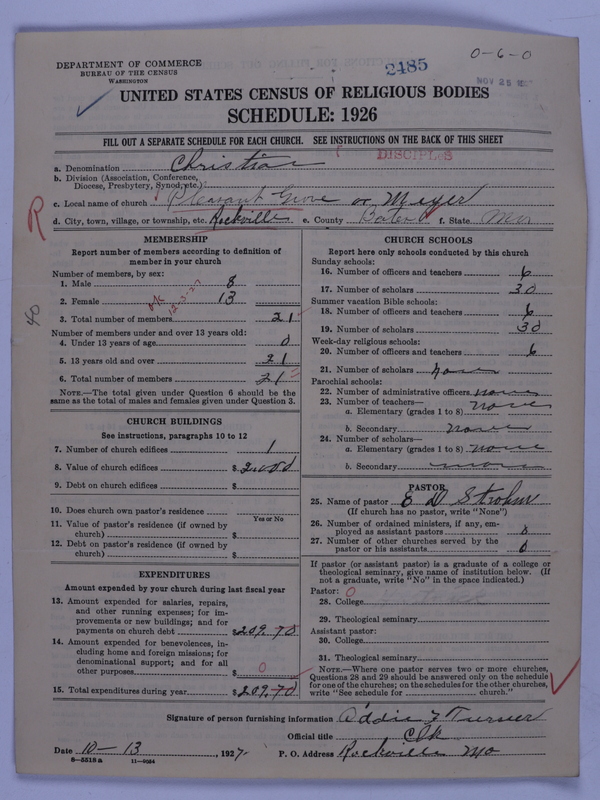 DEPARTMENT OF COMMERCE
BUREAU OF THE CENSUS
WASHINGTON
2485
0-6-0
NOV 25
UNITED STATES CENSUS OF RELIGIOUS BODIES
SCHEDULE: 1926
FILL OUT A SEPARATE SCHEDULE FOR EACH CHURCH. SEE INSTRUCTIONS ON THE BACK OF THIS SHEET
DISCIPLES
a. Denomination Christian
b. Division (Association, Conference, Diocese, Presbytery, Synod, etc.)
c. Local name of church Pleasant Grove or Meyer
d. City, town, village, or township, etc. Rockville e. County Bates f. State Mo
R
40
MEMBERSHIP
Report number of members according to definition of member in your church
Number of members, by sex:
1. Male 8
2. Female 13
ok 12-3-27
3. Total number of members 21
Number of members under and over 13 years old:
4. Under 13 years of age 0
5. 13 years old and over 21
6. Total number of members 21
NOTE.—The total given under Question 6 should be the same as the total of males and females given under Question 3.
CHURCH BUILDINGS
See instructions, paragraphs 10 to 12
7. Number of church edifices 1
8. Value of church edifices $ 2,000
9. Debt on church edifices $
10. Does church own pastor's residence
Yes or No
11. Value of pastor's residence (if owned by church) $
12. Debt on pastor's residence (if owned by church) $
EXPENDITURES
Amount expended by your church during last fiscal year
13. Amount expended for salaries, repairs, and other running expenses; for improvements or new buildings; and for payments on church debt $209.70
14. Amount expended for benevolences, including home and foreign missions; for denominational support; and for all other purposes $ 0
15. Total expenditures during year $209.70
CHURCH SCHOOLS
Report here only schools conducted by this church
Sunday schools:
16. Number of officers and teachers 6
17. Number of scholars 30
Summer vacation Bible schools:
18. Number of officers and teachers 6
19. Number of scholars 30
Week-day religious schools:
20. Number of officers and teachers 6
21. Number of scholars none
Parochial schools:
22. Number of administrative officers none
23. Number of teachers—
a. Elementary (grades 1 to 8) none
b. Secondary none
24. Number of scholars—
a. Elementary (grades 1 to 8) none
b. Secondary none
PASTOR
25. Name of pastor E D Strohm
(If church has no pastor, write "None")
26. Number of ordained ministers, if any, employed as assistant pastors 0
27. Number of other churches served by the pastor or his assistants 0
If pastor (or assistant pastor) is a graduate of a college or theological seminary, give name of institution below. (If not a graduate, write "No" in the space indicated.)
Pastor: 0
28. College
29. Theological seminary
Assistant pastor:
30. College
31. Theological seminary
NOTE.—Where one pastor serves two or more churches, Questions 28 and 29 should be answered only on the schedule for one of the churches; on the schedules for the other churches, write "See schedule for church."
Signature of person furnishing information Addie F Turner
Official title Clk
Date 10-13, 1927. P. O. Address Rockville Mo
8-5518 a 11-9054